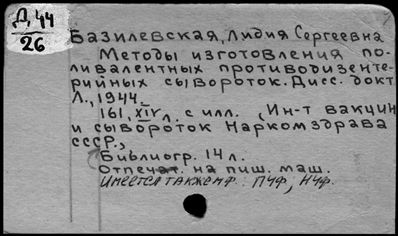 Д 44
26
Базилевская, Лидия Сергеевна
Методы изготовления по-
ливалентных противодизенте-
рийных сывороток. Дисс. докт.
Л., 1944.
161, XIV л. с илл. (Ин-т вакцин
и сывороток Наркомздрава
СССР.,
Библиогр. 14 л.
Отпечат. на пиш. маш.
Имеется также мф: ПЧФ, НЧФ.